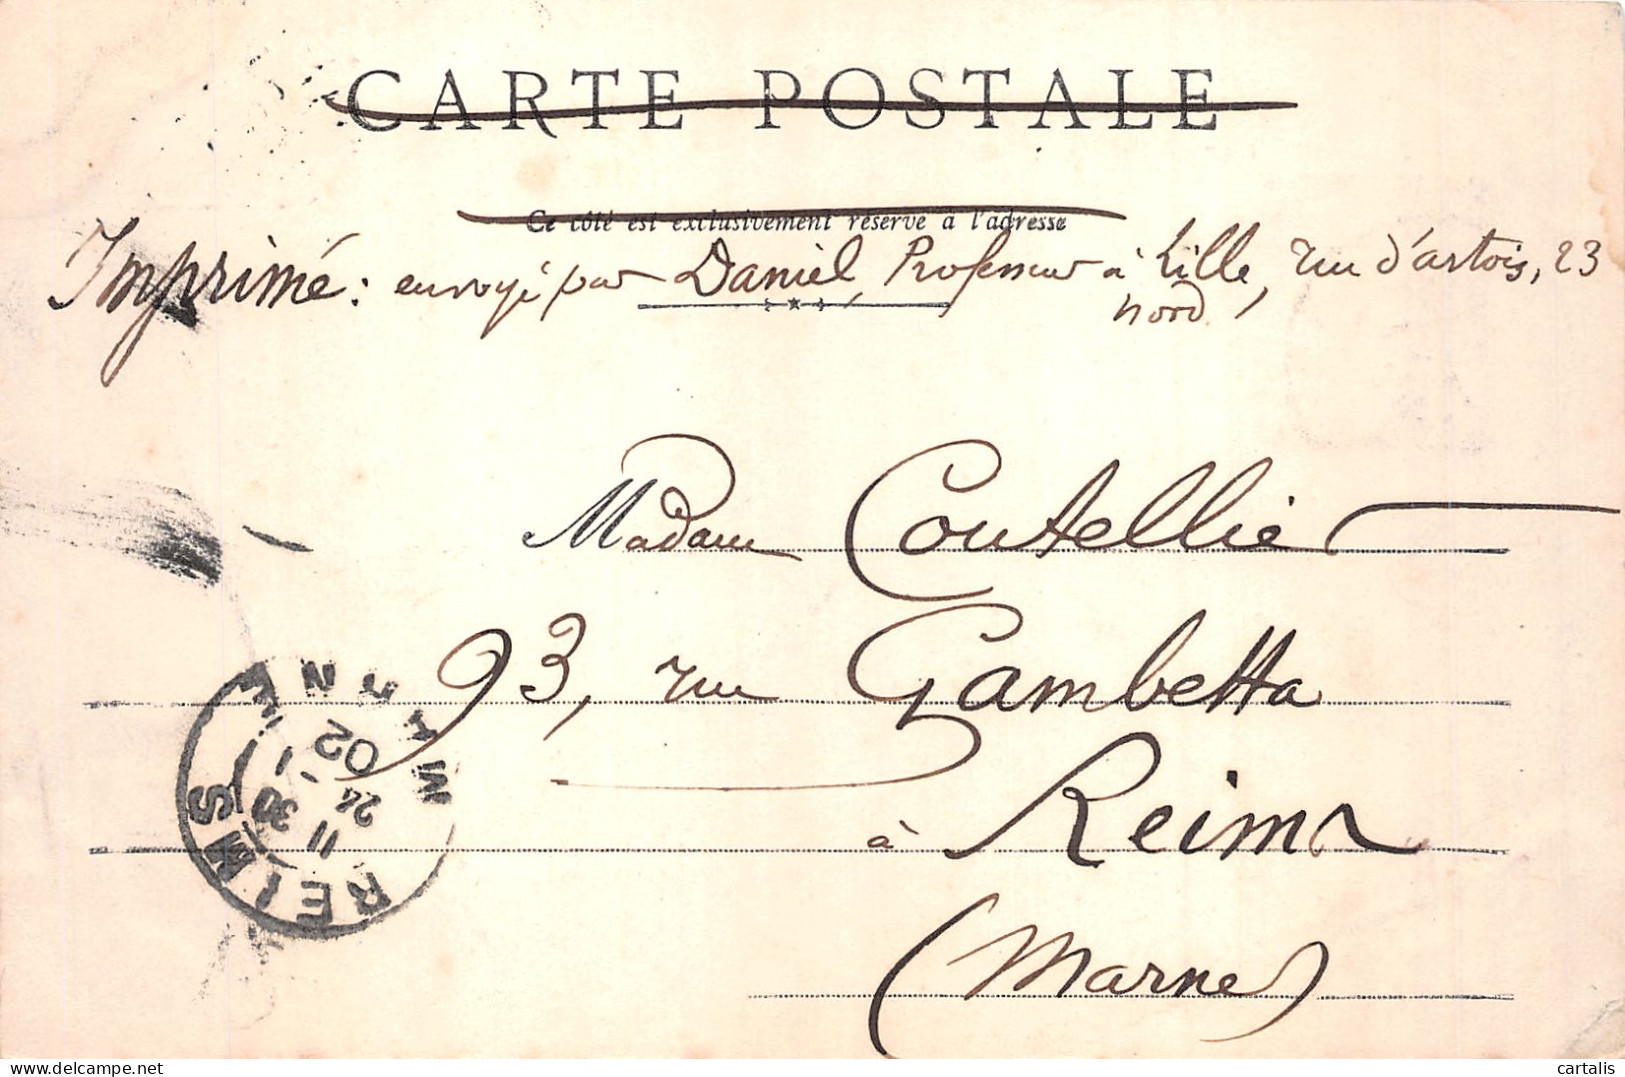 CARTE POSTALE
Ce côté est exclusivement réservé à l'adresse
Imprimé : envoyé par Daniel, Professeur à Lille, rue d'artois, 23
nord
Madame Coutellier
93, rue Gambetta
à Reims
(Marne)
REIMS MARNE
11 30
24 -1 02
cartalis